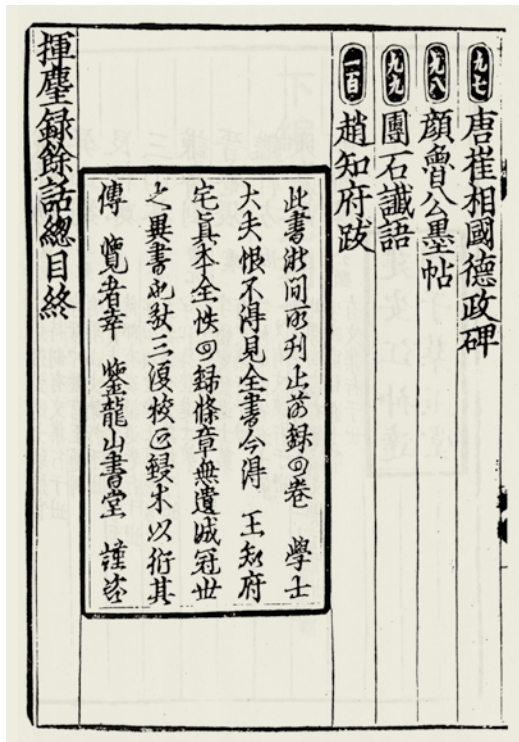 九七 唐崔相國德政碑
九八 顏魯公墨帖
九九 團石讖語
一百 趙知府跋
此書浙間所刊止前録四卷 學士
大夫恨不得見全書今得 王知府
宅眞本全帙四録條章無遺誠冠世
之異書也敬三復校正鋟木以衍其
傳 覽者幸 鑒龍山書堂 謹咨
揮麈録餘話總目終